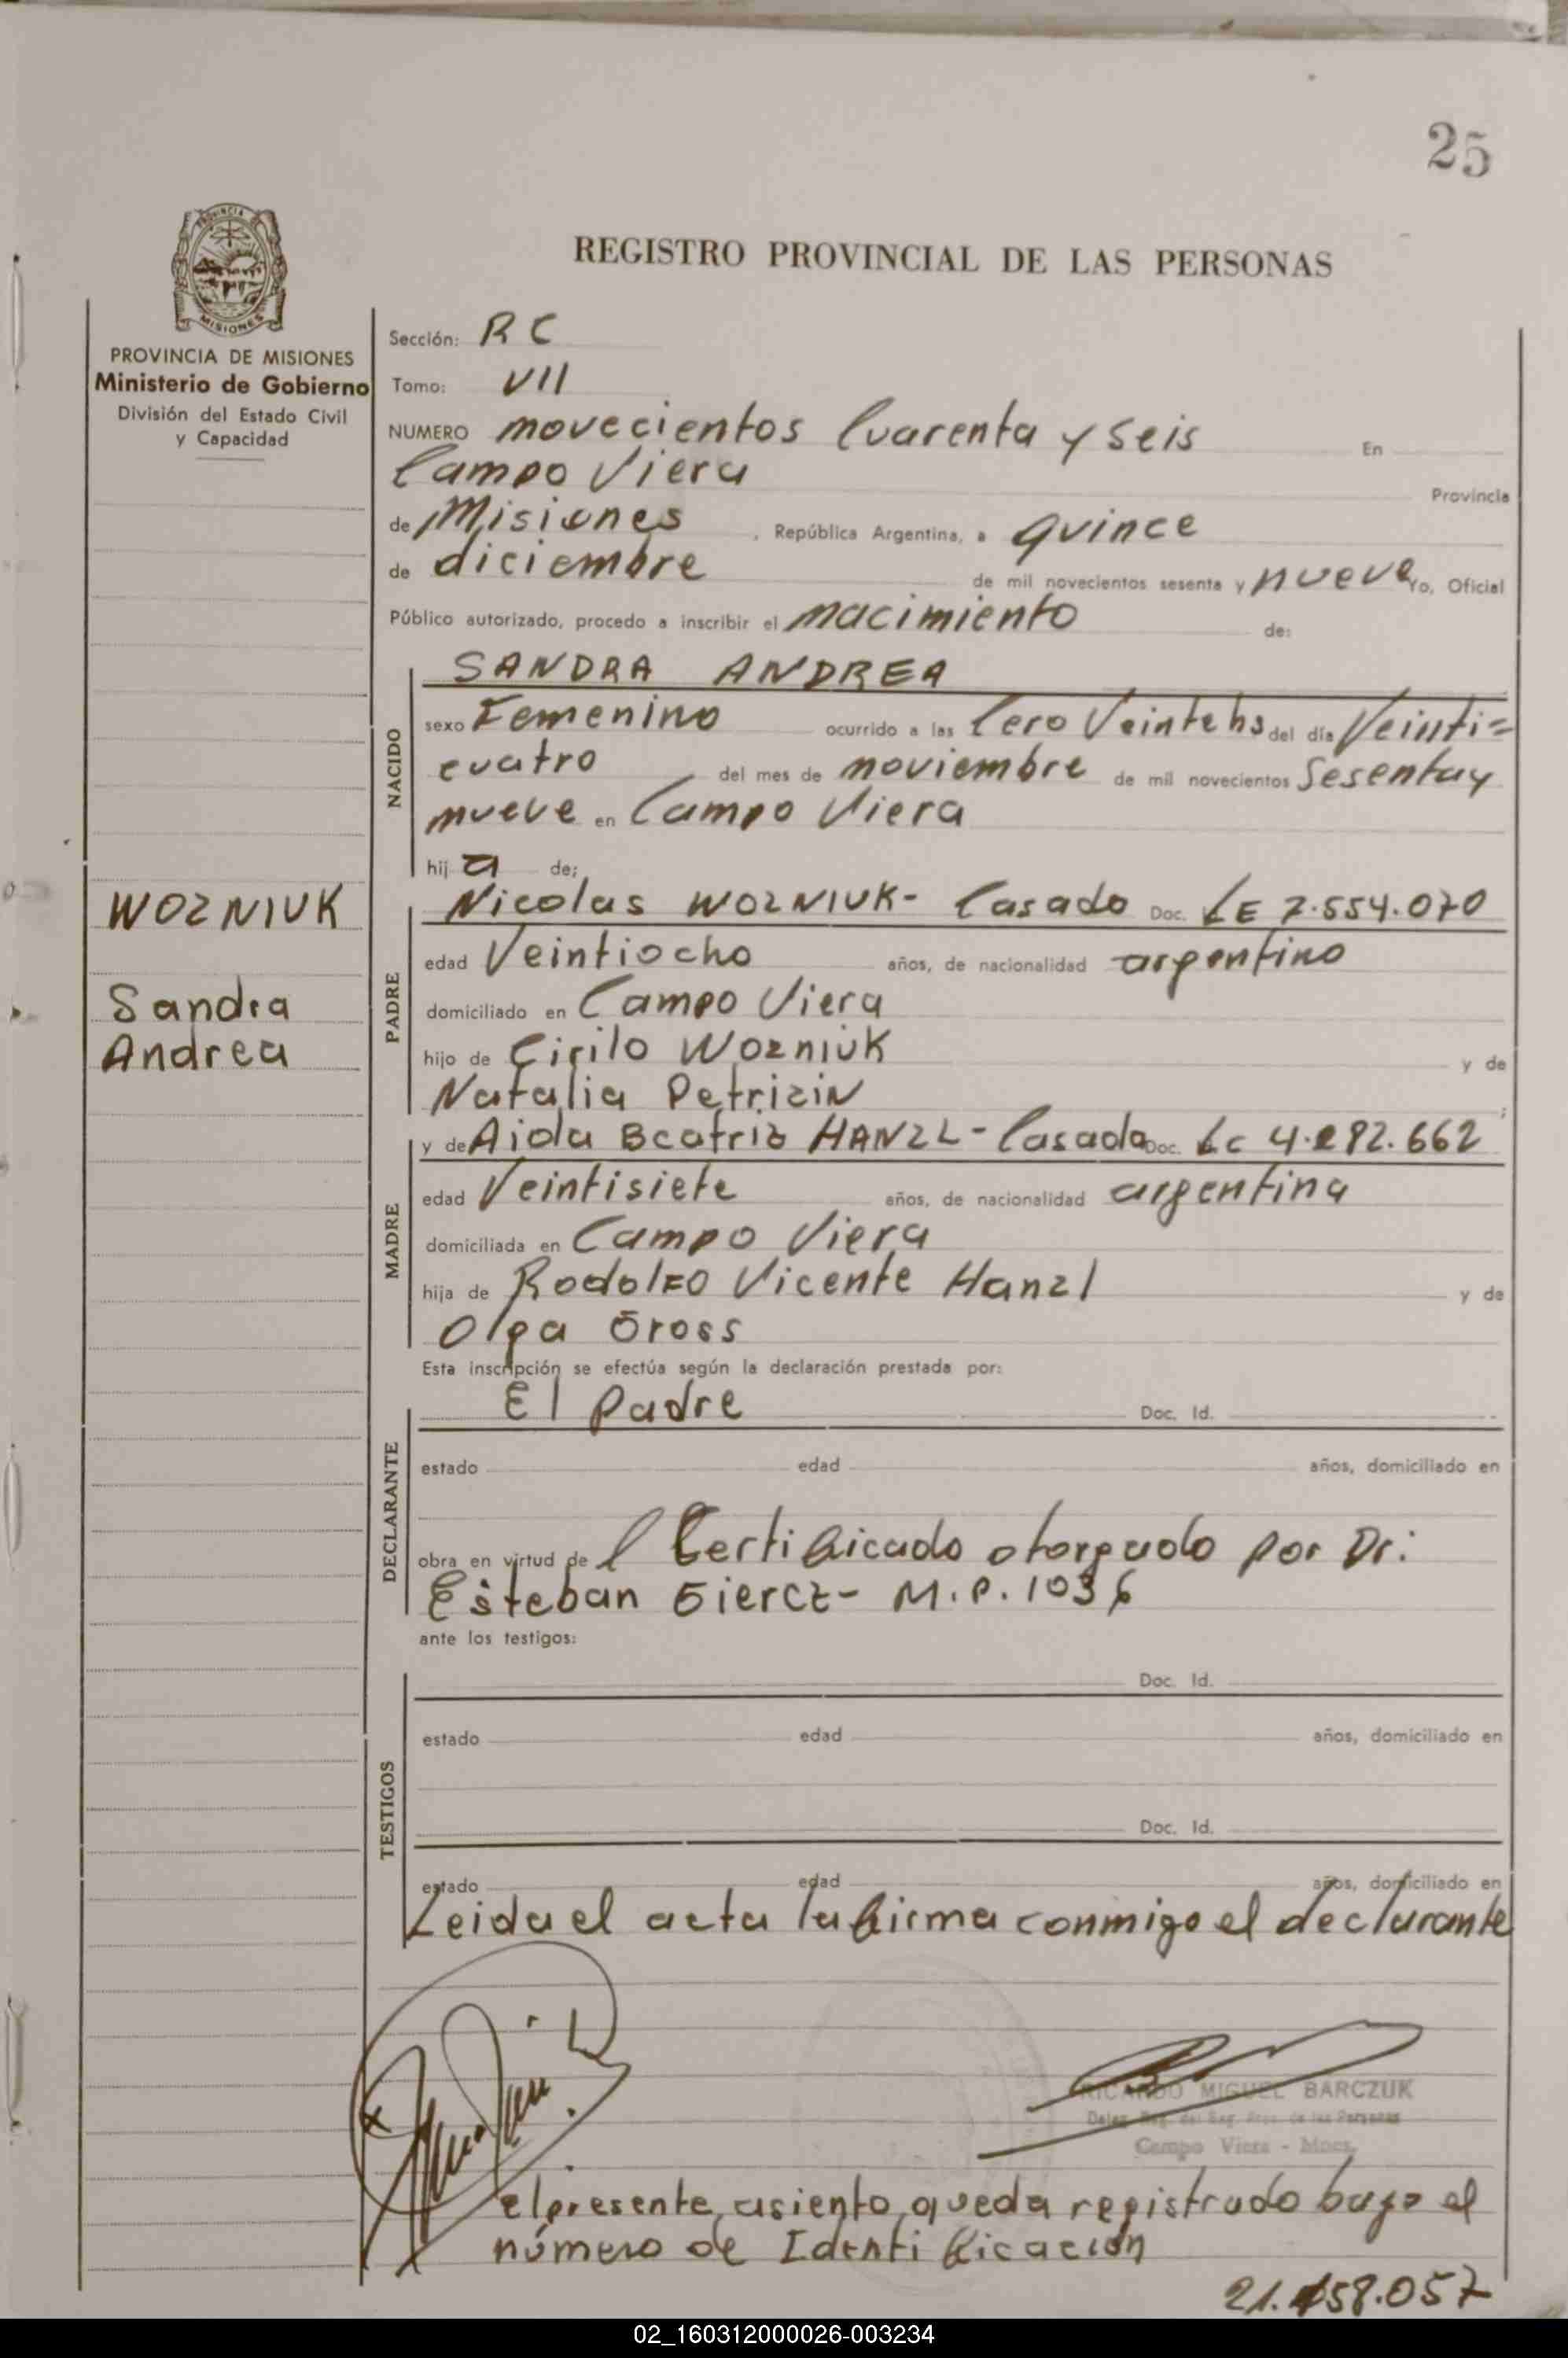 25
REGISTRO PROVINCIAL DE LAS PERSONAS
PROVINCIA DE MISIONES
MISIONES
PROVINCIA DE MISIONES
Ministerio de Gobierno
División del Estado Civil
y Capacidad
WOZNIUK
Sandra
Andrea
Sección: RC
Tomo: VII
NUMERO novecientos Cuarenta y seis En
Campo Viera Provincia
de Misiones, República Argentina, a quince
de diciembre de mil novecientos sesenta y nueve Yo, Oficial
Público autorizado, procedo a inscribir el nacimiento de:
NACIDO
SANDRA ANDREA
sexo Femenino ocurrido a las Cero Veinte hs del día Veinti=
cuatro del mes de noviembre de mil novecientos Sesenta y
nueve en Campo Viera
hij a de;
PADRE
Nicolas WOZNIUK- Casado Doc. LE 7.554.070
edad Veintiocho años, de nacionalidad argentino
domiciliado en Campo Viera
hijo de Cirilo Wozniuk y de
Natalia Petrizin ;
MADRE
y de Aida Beatriz HANZL- Casada Doc. LC 4.292.662
edad Veintisiete años, de nacionalidad argentina
domiciliada en Campo Viera
hija de Rodolfo Vicente Hanzl y de
Olga Gross
Esta inscripción se efectúa según la declaración prestada por:
DECLARANTE
El Padre Doc. Id.
estado edad años, domiciliado en
obra en virtud de l Certificado otorgado por Dr:
Esteban M.P. 1036
ante los testigos:
TESTIGOS
Doc. Id.
estado edad años, domiciliado en
Doc. Id.
estado edad años, domiciliado en
Leida el acta la firma conmigo el declarante
RICARDO MIGUEL BARCZUK
Campo Viera - Mnes.
el presente asiento queda registrado bajo el
número de Identificación
21.158.057
02_160312000026-003234